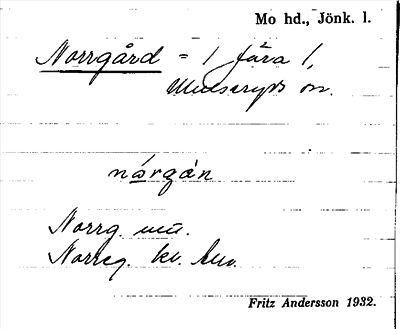 Mo hd., Jönk. l.
Norrgård = 1 Fåra 1,
Mulseryds sn.
nórgán
Norrg.
Norreg. kv.
Fritz Andersson 1932.